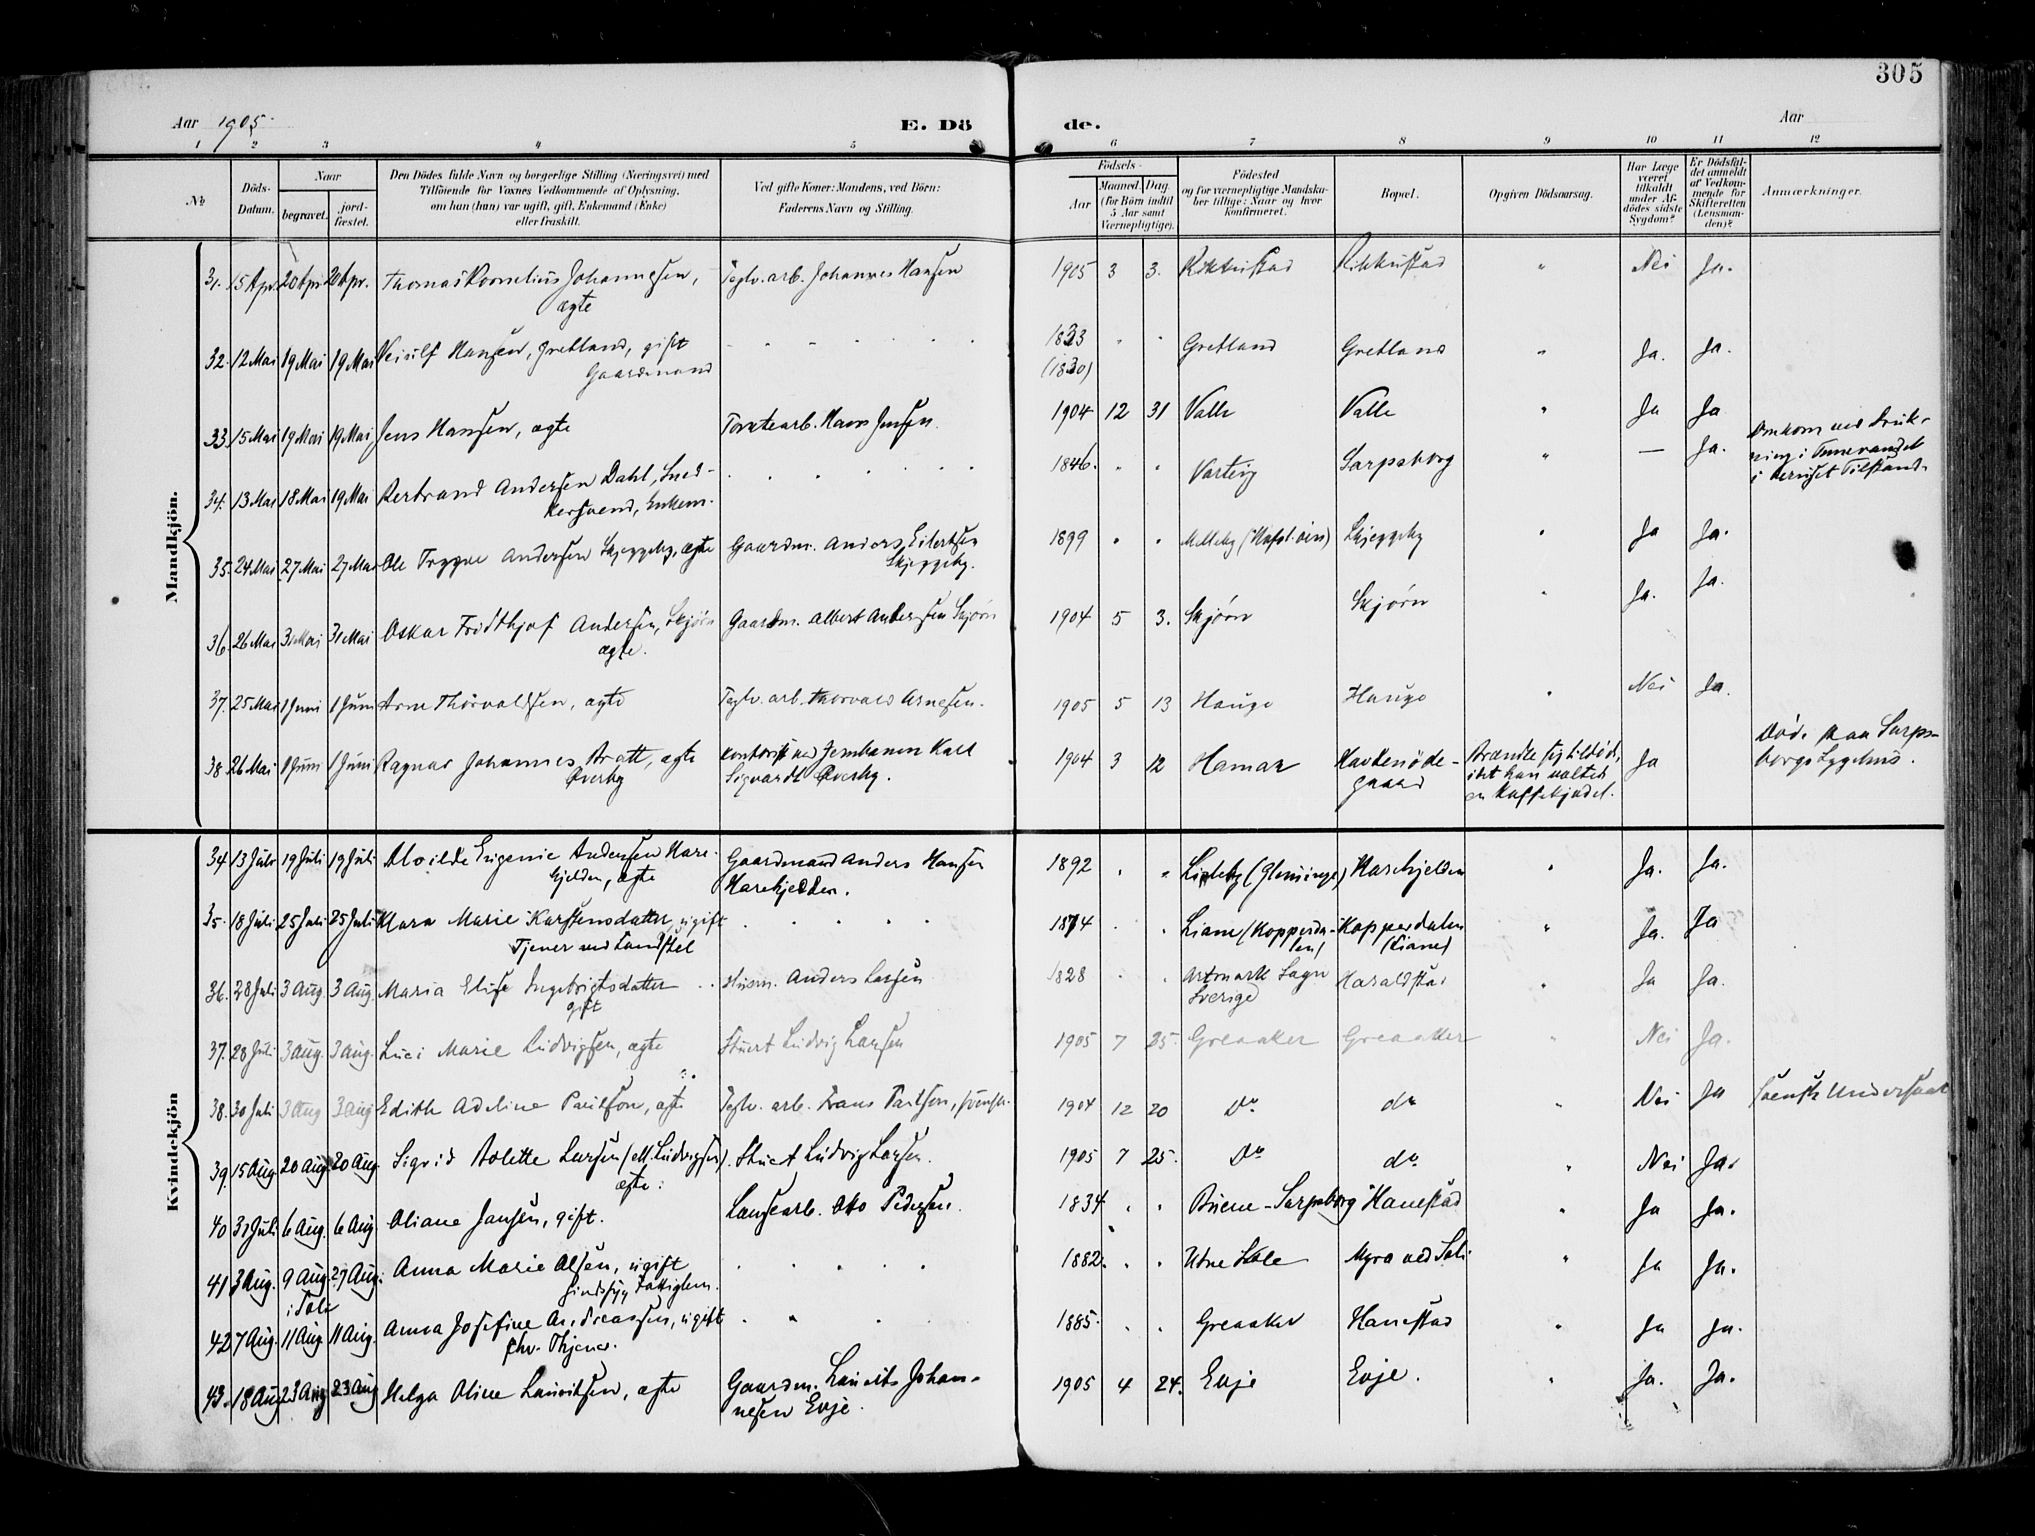 305
Aar 1905.
E. Dö
de.
Aar
1 2 3 4 5 6 7 8 9 10 11 12
No
Döds-
Datum.
Naar
begravet.
jord-
fæstet.
Den Dödes fulde Navn og borgerlige Stilling (Næringsvei) med
Tilföiende for Voxnes Vedkommende af Oplysning,
om han (hun) var ugift, gift, Enkemand (Enke)
eller fraskilt.
Ved gifte Koner: Mandens, ved Börn:
Faderens Navn og Stilling.
Födsels-
Aar
Maaned. Dag.
(for Börn indtil
5 Aar samt
Værnepligtige).
Födested
og for værnepligtige Mandsku-
ber tillige: Naar og hvor
konfirmeret.
Bopæl.
Opgiven Dödsaarsag.
Har Læge
været
tilkaldt
under Af-
dödes sidste
Sygdom?
Er Dödsfal-
det anmeldt
af Vedkom-
mende for
Skifteretten
(Lensman-
den)?
Anmærkninger.
Mandkjön.
31. 15 Apr. 20 Apr. 20 Apr. Thomas Kornelius Johannesen, Teglv. arb. Johannes Hansen 1905 3 3. Kikkustad Kikkustad " Nei Ja.
ægte
32. 12 Mai 19 Mai 19 Mai Neiulf Hansen, Gretland, gift 1833 " " Gretland Gretland " Ja. Ja.
Gaardmand (1830)
33. 15 Mai 19 Mai 19 Mai Jens Hansen, ægte Tomtearb. Hans Jensen. 1904 12 31 Valle Valle " Ja Ja
34. 13 Mai 18 Mai 19 Mai Bertrand Andersen Dahl, Sned- 1846. " " Varteig Sarpsborg " — Ja. Omkom ved Druk-
kersvend, Enkem. ning i Tunevandet
i beruset Tilstand.
35. 24 Mai 27 Mai 27 Mai Ole Trygve Andersen Skjeggeby, ægte Gaardm. Anders Eilertsen 1899 " " Melleby (Hafslöen) Skjeggeby " Ja Ja.
Skjeggeby.
36. 26 Mai 31 Mai 31 Mai Oskar Fridthjof Andersen, Skjörn Gaardm. Albert Andersen Skjörn 1904 5 3. Skjörn Skjörn " Ja. Ja.
ægte.
37. 25 Mai 1 Juni 1 Juni Arne Thorvaldsen, ægte Teglv. arb. Thorvald Arnesen. 1905 5 13 Hauge Hauge " Nei Ja.
38. 26 Mai 1 Juni 1 Juni Ragnar Johannes Bratt, ægte Kontorist ved Jernbanen Karl 1904 3 12 Hamar Havnenöde- Brændte sig tildöd, Ja Död paa Sarps-
Överby Sigvardt Överby. gaard idet han væltet borgs Sygehus.
en Kaffekjedel.
Kvindekjön
34. 13 Juli 19 Juli 19 Juli Alvilde Eugenie Andersen Hare- Gaardmand Anders Hansen 1892 " " Lisleby (Glemminge) Harekjelden " Ja. Ja.
kjelden, ægte Harekjelden.
35. 18 Juli 25 Juli 25 Juli Klara Marie Karstensdatter, ugift 1874 " " Liane (Kopperda- Kopperdalen " Ja. Ja
Tjener ved Landstel len) (Liane)
36. 28 Juli 3 Aug. 3 Aug. Maria Elise Ingebrigtsdatter Husm. Anders Larsen 1828 " " Artmark Sogn Haraldstad " Ja Ja.
gift Sverige
37. 28 Juli 3 Aug. 3 Aug. Luci Marie Ludvigsen, ægte Stuert Ludvig Larsen 1905 7 25. Greaaker Greaaker " Nei Ja.
38. 30 Juli 3 Aug 3 Aug Edith Adeline Paulson, ægte Teglv. arb. Frans Paulson, svensk. 1904 12 20 Do do " Nei Ja Svensk Undersaat
39. 15 Aug 20 Aug. 20 Aug. Sigrid Aolette Larsen (ell. Ludvigsen). Stuert Ludvig Larsen. 1905 7 25. Do do " Nei Ja.
ægte.
40 31 Juli 6 Aug. 6 Aug Oliane Jansen, gift. Landsearb. Otto Pedersen. 1834 " " Briene-Sarpsborg Hanestad " Ja Ja.
41 3 Aug. 9 Aug. 27 Aug. Anna Marie Olsen, ugift 1882. " " Utne Skole Myra ved Soli " Ja Ja.
i Soli Sindssyg Fattiglem.
42 7 Aug. 11 Aug 11 Aug. Anna Josefine Andreassen, ugift 1885. " " Greaaker Hanestad " Ja Ja.
fhv. Thjener.
43. 18 Aug 23 Aug 23 Aug Helga Oline Lauritsen, ægte Gaardm. Laurits Johan- 1905 4 24. Evje Evje. " Ja. Ja.
nesen Evje.